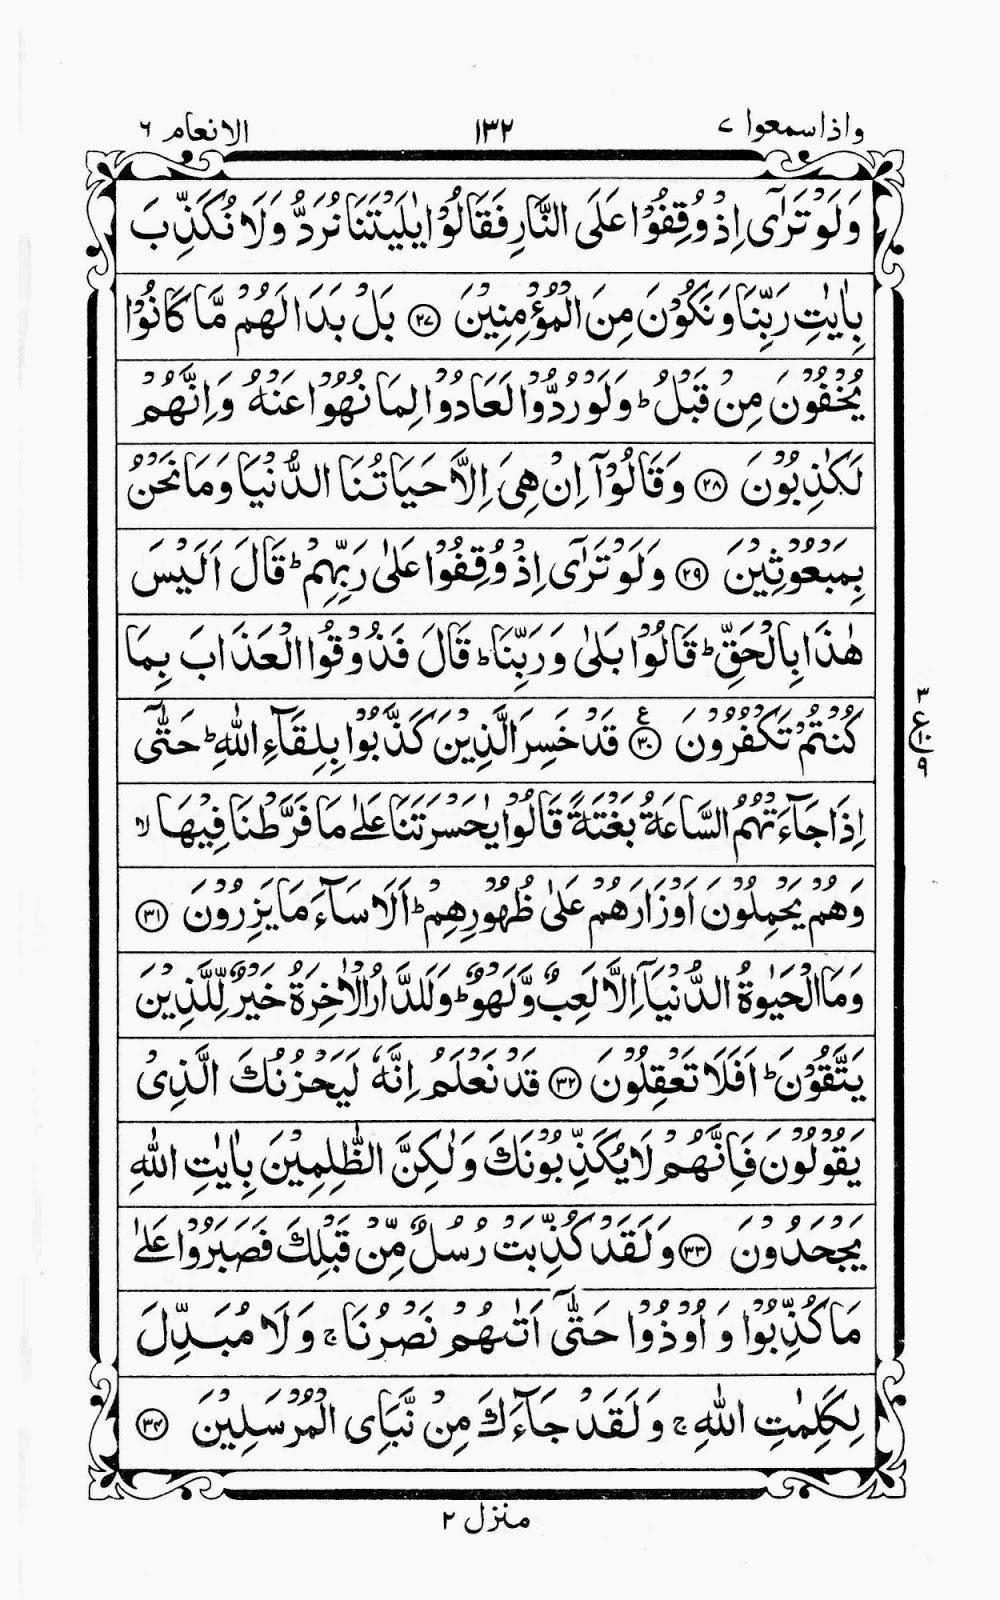 واذاسمعوا ٧ ١٣٢ الانعام ٦
وَلَوْ تَرٰٓى اِذْ وُقِفُوْا عَلَى النَّارِ فَقَالُوْا يٰلَيْتَنَا نُرَدُّ وَلَا نُكَذِّبَ
بِاٰيٰتِ رَبِّنَا وَنَكُوْنَ مِنَ الْمُؤْمِنِيْنَ ﴿٢٧﴾ بَلْ بَدَا لَهُمْ مَّا كَانُوْا
يُخْفُوْنَ مِنْ قَبْلُ ؕ وَلَوْ رُدُّوْا لَعَادُوْا لِمَا نُهُوْا عَنْهُ وَاِنَّهُمْ
لَكٰذِبُوْنَ ﴿٢٨﴾ وَقَالُوْٓا اِنْ هِىَ اِلَّا حَيَاتُنَا الدُّنْيَا وَمَا نَحْنُ
بِمَبْعُوْثِيْنَ ﴿٢٩﴾ وَلَوْ تَرٰٓى اِذْ وُقِفُوْا عَلٰى رَبِّهِمْ ؕ قَالَ اَلَيْسَ
هٰذَا بِالْحَقِّ ؕ قَالُوْا بَلٰى وَرَبِّنَا ؕ قَالَ فَذُوْقُوا الْعَذَابَ بِمَا
كُنْتُمْ تَكْفُرُوْنَ ﴿٣٠﴾ ع قَدْ خَسِرَ الَّذِيْنَ كَذَّبُوْا بِلِقَآءِ اللّٰهِ ؕ حَتّٰٓى
٣ ع ١٠ ٩
اِذَا جَآءَتْهُمُ السَّاعَةُ بَغْتَةً قَالُوْا يٰحَسْرَتَنَا عَلٰى مَا فَرَّطْنَا فِيْهَا ۙ
وَهُمْ يَحْمِلُوْنَ اَوْزَارَهُمْ عَلٰى ظُهُوْرِهِمْ ؕ اَلَا سَآءَ مَا يَزِرُوْنَ ﴿٣١﴾
وَمَا الْحَيٰوةُ الدُّنْيَآ اِلَّا لَعِبٌ وَّلَهْوٌ ؕ وَلَلدَّارُ الْاٰخِرَةُ خَيْرٌ لِّلَّذِيْنَ
يَتَّقُوْنَ ؕ اَفَلَا تَعْقِلُوْنَ ﴿٣٢﴾ قَدْ نَعْلَمُ اِنَّهٗ لَيَحْزُنُكَ الَّذِىْ
يَقُوْلُوْنَ فَاِنَّهُمْ لَا يُكَذِّبُوْنَكَ وَلٰكِنَّ الظّٰلِمِيْنَ بِاٰيٰتِ اللّٰهِ
يَجْحَدُوْنَ ﴿٣٣﴾ وَلَقَدْ كُذِّبَتْ رُسُلٌ مِّنْ قَبْلِكَ فَصَبَرُوْا عَلٰى
مَا كُذِّبُوْا وَاُوْذُوْا حَتّٰٓى اَتٰىهُمْ نَصْرُنَا ۚ وَلَا مُبَدِّلَ
لِكَلِمٰتِ اللّٰهِ ۚ وَلَقَدْ جَآءَكَ مِنْ نَّبَاِى الْمُرْسَلِيْنَ ﴿٣٤﴾
منزل ٢